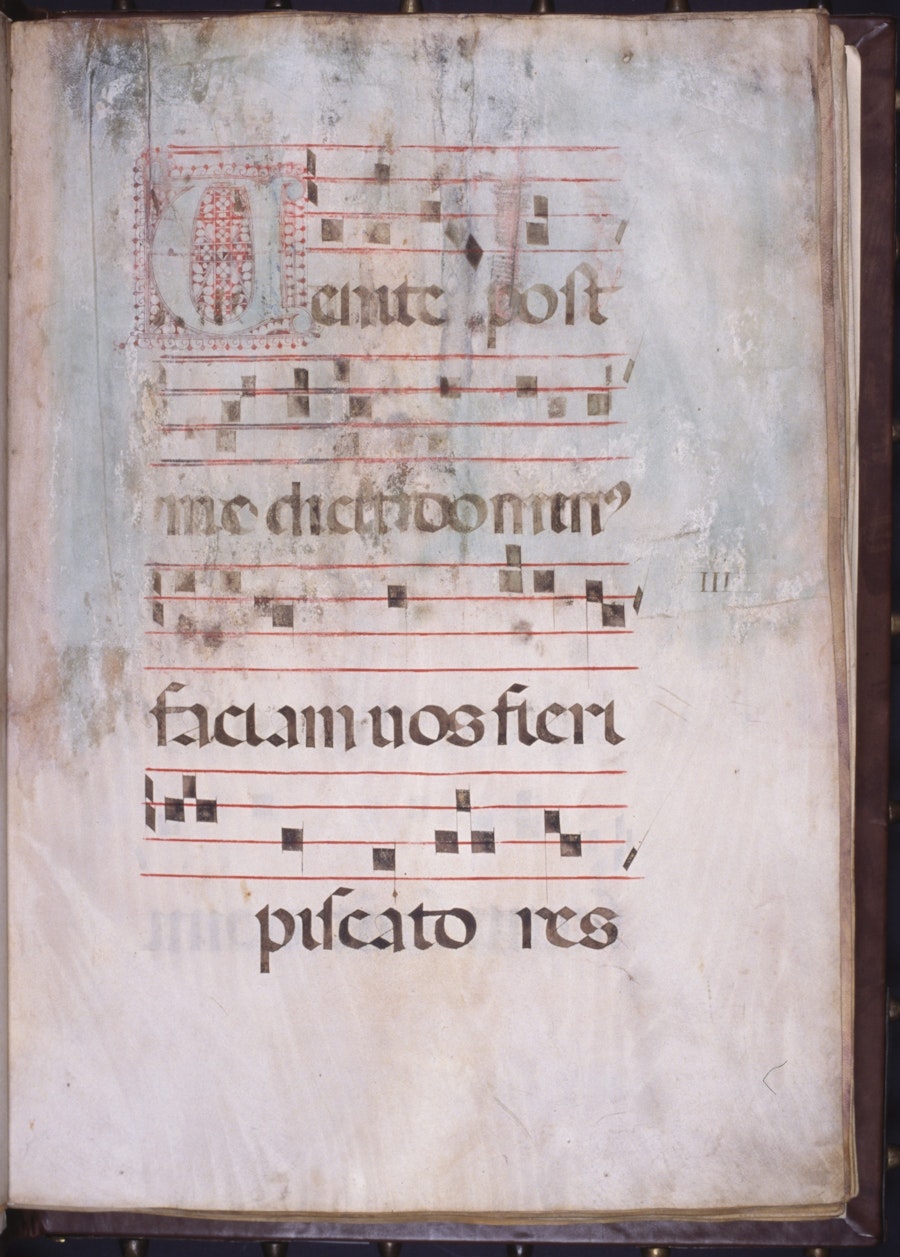 Uenite poſt
me dicit dominꝰ
III
faciam uos fieri
piſcato res